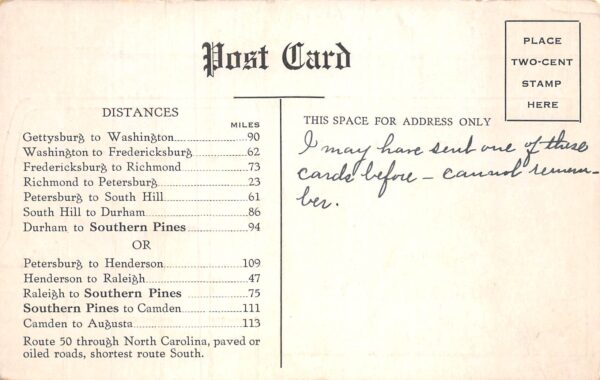 Post Card
PLACE
TWO-CENT
STAMP
HERE
DISTANCES
MILES
Gettysburg to Washington 90
Washington to Fredericksburg 62
Fredericksburg to Richmond 73
Richmond to Petersburg 23
Petersburg to South Hill 61
South Hill to Durham 86
Durham to Southern Pines 94
OR
Petersburg to Henderson 109
Henderson to Raleigh 47
Raleigh to Southern Pines 75
Southern Pines to Camden 111
Camden to Augusta 113
Route 50 through North Carolina, paved or
oiled roads, shortest route South.
THIS SPACE FOR ADDRESS ONLY
I may have sent one of these
cards before – cannot remem-
ber.